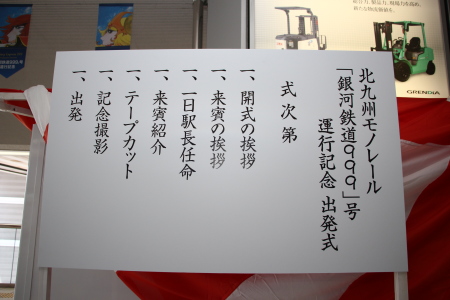 北九州モノレール
「銀河鉄道９９９」号
運行記念 出発式
式次第
一、開式の挨拶
一、来賓の挨拶
一、一日駅長任命
一、来賓紹介
一、テープカット
一、記念撮影
一、出発
GRENDiA